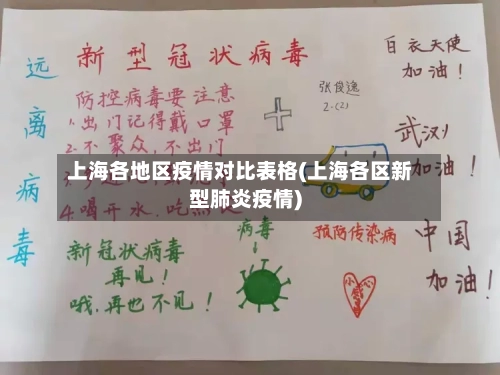 新型冠状病毒
远离病毒
防控病毒要注意
1.出门记得戴口罩
2.不聚众,不出门
4.喝开水,吃
新冠状病毒
再见!
哦,再也不见!
张俊逸
2.(2)
白衣天使
加油!
武汉
加油!
中国
加油!
病毒
预防传染病
小心
上海各地区疫情对比表格(上海各区新
型肺炎疫情)